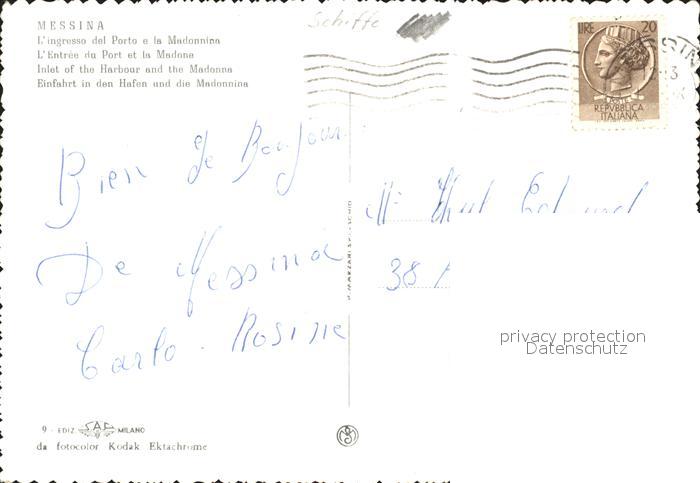 MESSINA
L'ingresso del Porto e la Madonnina
L'Entrée du Port et la Madone
Inlet of the Harbour and the Madonna
Einfahrt in den Hafen und die Madonnina
Schiffe
LIRE 20
POSTE
REPVBBLICA
ITALIANA
Bien Je Bonjour
De Messina
Carlo - Rosine
Mr
38
privacy protection
Datenschutz
9 - EDIZ. SAC MILANO
da fotocolor Kodak Ektachrome